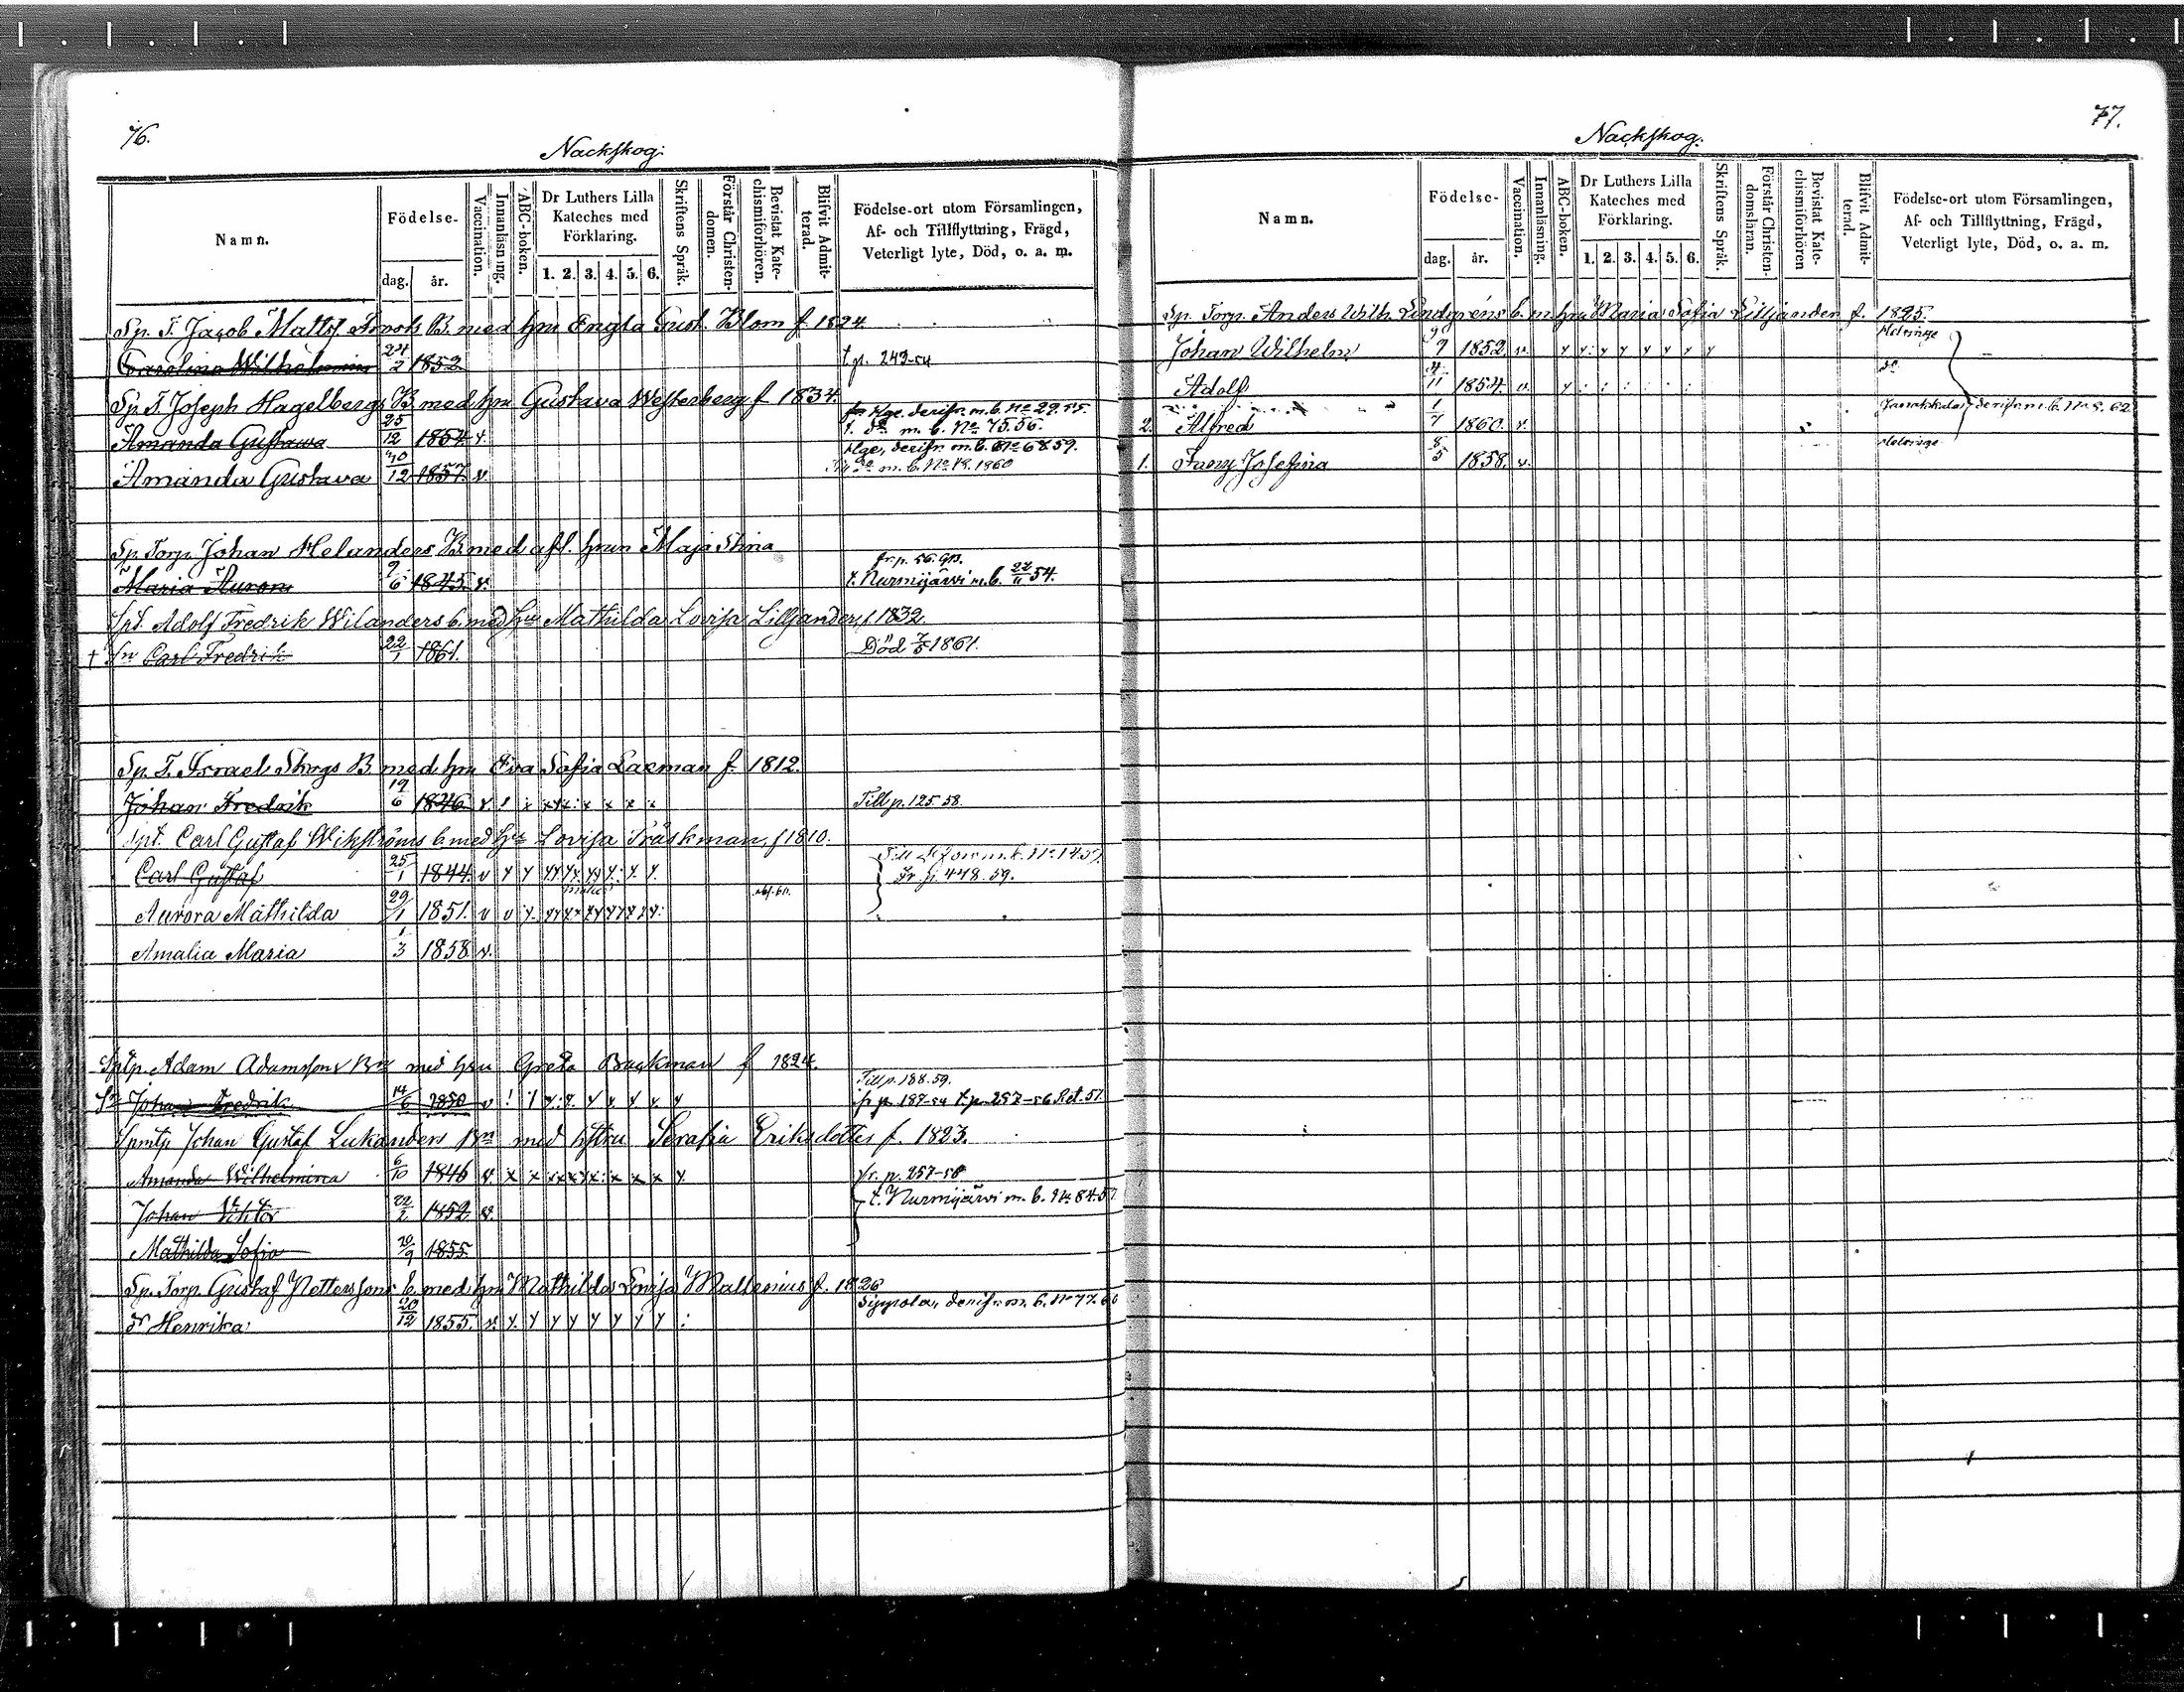 76.
Nackskog.
Namn.
Födelse-
dag. år.
Vaccination.
Innanläsning.
ABC-boken.
Dr Luthers Lilla Kateches med Förklaring.
1. 2. 3. 4. 5. 6.
Skriftens Språk.
Förstår Christen-domen.
Bevistat Kate-chismiförhören.
Blifvit Admit-terad.
Födelse-ort utom Församlingen,
Af- och Tillflyttning, Frägd,
Veterligt lyte, Död, o. a. m.
Sp. T. Jacob Matts. B. med hru Engla Gust. Blom f. 1824.
Carolina Wilhelmina 24/2 1852. t. p. 249-54
Sp. T. Joseph Hagelbergs B med hru Gustava Westerberg f 1834.
Hge. derifr. m. b. No 29.55.
Amanda Gustawa 25/12 1854 v. t. do m. b. No 75.56.
Hge, derifr. m. b. No 68 59.
Amanda Gustava 12 1857. v. do m. b. No 18. 1860
Sp. Torp. Johan Helanders B. med afl. hrun Maja Stina
fr. p. 56.
Maria Aurora 9/6 1845. v. t. Nurmijärvi m. b. 22/11 54.
Spt. Adolf Fredrik Wilanders b. med hru Mathilda Lovisa Lilljander, f 1832.
† Sn Carl Fredrik 22/1 1861. Död 7/5 1861.
Sp. T. Israel Skogs B. med hru Eva Sofia Laxman f. 1812.
Johan Fredrik 19/6 1846 v Till p. 125 58.
Spt. Carl Gustaf Wikströms b. med hru Lovisa Träskman, f 1810.
Carl Gustaf 25/1 1844. v Fr. p. 448. 59.
Aurora Mathilda 29/1 1851. v
Amalia Maria 1/3 1858 v.
Sptp. Adam Adamssons Bn med hru Greta Backman f 1824.
Till p. 188. 59.
Sn Johan Fredrik 14/6 1850 v fr p. 187-54 t. p. 257-56 Ret. 57.
Spmtp Johan Gustaf Lukanders Bn med hstru Serafia Eriksdotter f. 1823.
Amanda Wilhelmina 6/10 1846 v. fr. p. 257-56
Johan Viktor 22/2 1852 v. t. Nurmijärvi m. b. No 84.57
Mathilda Sofia 20/9 1855
Sp. Torp. Gustaf Pettersons b. med hru Mathilda Lovisa Mallenius f. 1826
Sippola, derifr. m. b. No 77. 66
dr Henrika 20/12 1855. v.
77.
Nackskog.
Namn.
Födelse-
dag. år.
Vaccination.
Innanläsning.
ABC-boken.
Dr Luthers Lilla Kateches med Förklaring.
1. 2. 3. 4. 5. 6.
Skriftens Språk.
Förstår Christen-domsläran.
Bevistat Kate-chismiförhören
Blifvit Admit-terad.
Födelse-ort utom Församlingen,
Af- och Tillflyttning, Frägd,
Veterligt lyte, Död, o. a. m.
Sp. Torp. Anders Wilh. Lindgréns b. m hru Maria Sofia Liljander f. 1825.
Johan Wilhelm 9/9 1852 v. Helsinge
Adolf 4/11 1854. v. do
2. Alfred 1/7 1860. v. Janakkala, derifr. m. b. No 8. 62
1. Fanny Josefina 8/5 1858. v. Helsinge